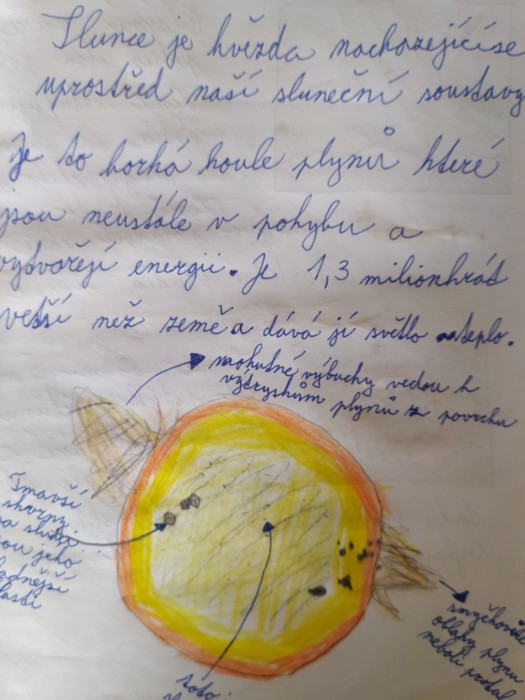 Slunce je hvězda nacházejícíse
uprostřed naší sluneční soustavy
Je to horká koule plynů které
jsou neustále v pohybu a
vytvářejí energii. Je 1,3 milionkrát
vetší než země a dává jí světlo teplo.
mohutné výbuchy vedou k
výtryskům plynů z povrchu
Tmavší
skvrny
na slunci
jsou jeho
ladnější
lasti
oblaky plynu
neboli
toto